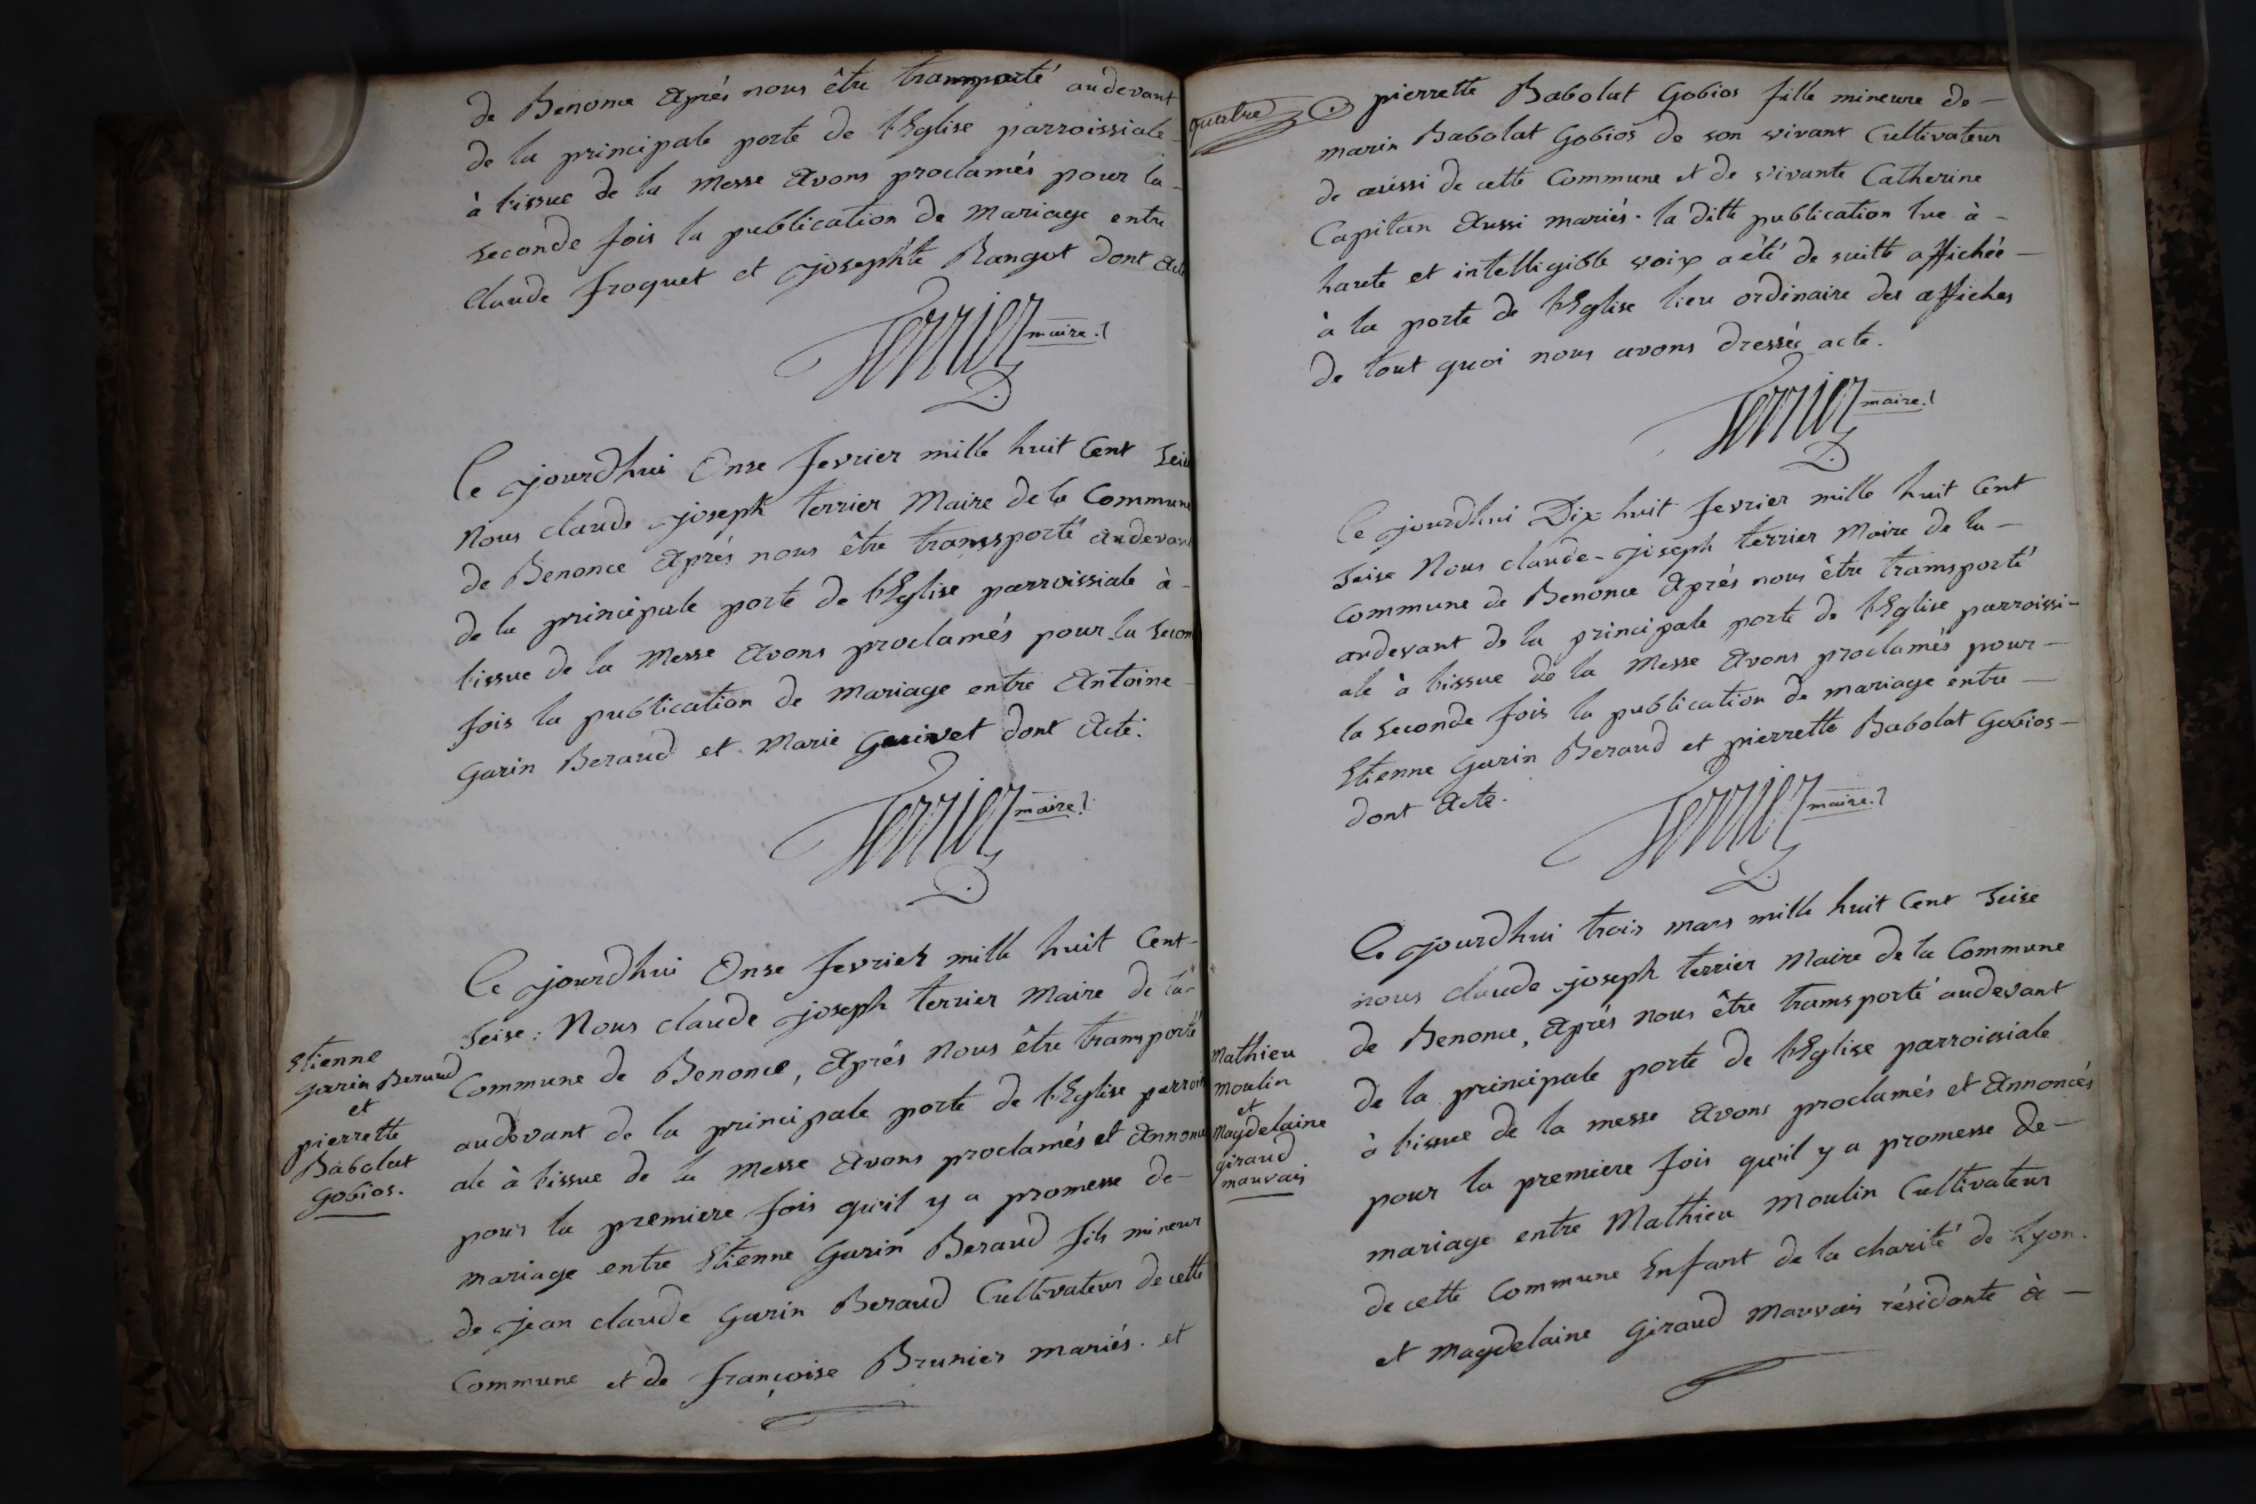 de Benonce Aprés nous être transporté audevant
de la principale porte de l'Eglise parroissiale
à l'issue de la Messe Avons proclamés pour la -
seconde fois la publication de Mariage entre
Claude froquet et josephte Rangot dont Acte
Terrier maire
Ce jourdhui Onse fevrier mille huit Cent Seise
Nous claude joseph terrier Maire de la Commune
de Benonce Aprés nous être transporté audevant
de la principale porte de l'Eglise parroissiale à -
l'issue de la Messe Avons proclamés pour la Secon
fois la publication de Mariage entre Antoine
Garin Beraud et Marie Guinet dont Acte.
Terrier maire
Ce jourdhui Onse fevrier mille huit Cent -
Seise : Nous claude joseph terrier Maire de la -
Etienne
Garin Beraud
et
pierrette
Babolat
Gobios.
Commune de Benonce, Aprés Nous être transporté
audevant de la principale porte de l'Eglise parroissi
ale à l'issue de la Messe Avons proclamés et Annoncé
pour la premiere fois qu'il y a promesse de -
mariage entre Etienne Garin Beraud fils mineur
de jean claude Garin Beraud Cultivateur de cette
Commune et de françoise Brunier mariés. et
quatre
pierrette Babolat Gobios fille mineure de -
marin Babolat Gobios de son vivant Cultivateur
de aussi de cette Commune et de vivante Catherine
Capitan Aussi mariés. la ditte publication lue à -
haute et intelligible voix a été de suitte affichée -
à la porte de l'Eglise lieu ordinaire des affiches
de tout quoi nous avons dressée acte.
Terrier maire
Ce jourdhui Dix huit fevrier mille huit Cent
Seise Nous claude - joseph terrier Maire de la -
Commune de Benonce Aprés nous être transporté
audevant de la principale porte de l'Eglise parroissi-
ale à l'issue de la Messe Avons proclamés pour -
la Seconde fois la publication de mariage entre -
Etienne Garin Beraud et pierrette Babolat Gobios -
dont Acte.
Terrier maire
Ce jourdhui trois mars mille huit Cent Seise
nous claude joseph terrier Maire de la Commune
de Benonce, Aprés Nous être transporté audevant
Mathieu
Moulin
et
Magdelaine
giraud
mauvais
de la principale porte de l'Eglise parroissiale
à l'issue de la messe Avons proclamés et Annoncés
pour la premiere fois qu'il y a promesse de -
mariage entre Mathieu Moulin Cultivateur
de cette Commune Enfant de la charité de Lyon.
et Magdelaine Giraud Mauvais résidante à -